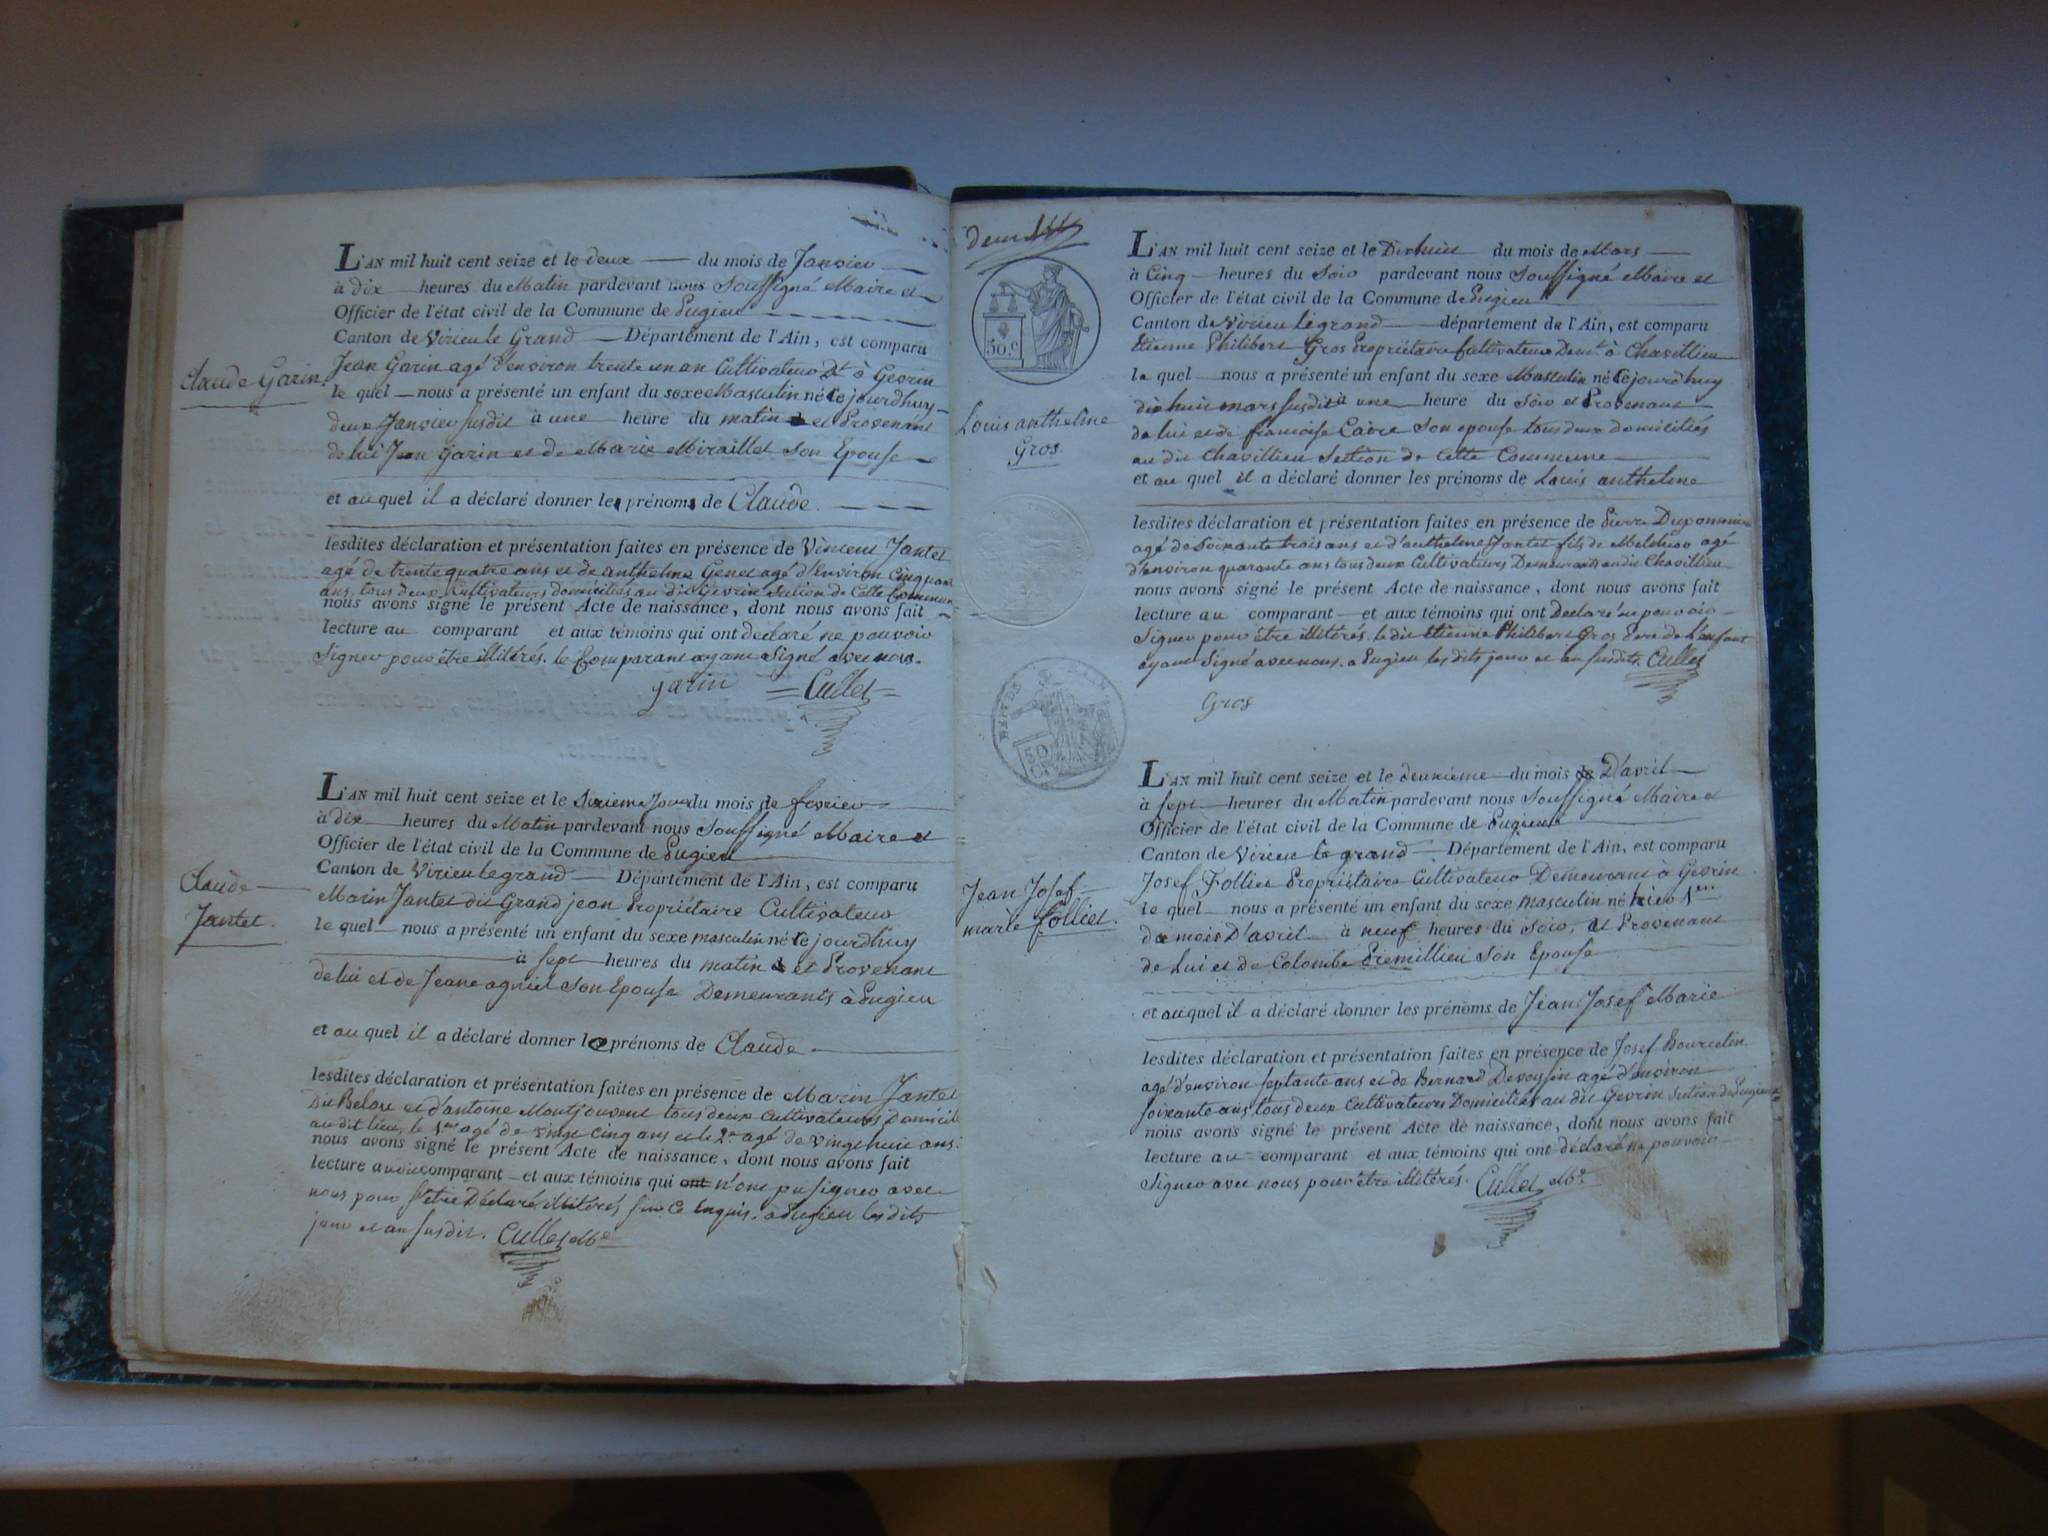 Claude Garin
L'AN mil huit cent seize et le deux du mois de Janvier
à dix heures du Matin pardevant nous Soussigné Maire et
Officier de l'état civil de la Commune de Pugieu
Canton de Virieu le Grand Département de l'Ain, est comparu
Jean Garin agé d'environ trente un an Cultivateur Dt à Gevrin
le quel nous a présenté un enfant du sexe Masculin né Cejourdhuy
deux Janvier susdit à une heure du matin et Provenant
de lui Jean Garin et de Marie Miraillet son Epouse
et au quel il a déclaré donner le prénom de Claude.
lesdites déclaration et présentation faites en présence de Vincent Jantet
agé de trente quatre ans et de anthelme Genet agé d'environ Cinquante
ans, tous deux Cultivateurs domiciliés au dit Gevrin Section de Cette Commune
nous avons signé le présent Acte de naissance, dont nous avons fait
lecture au comparant et aux témoins qui ont déclaré ne pouvoir
Signer pour être illitérés. le Comparant ayant Signé avec nous.
garin Cullet
Claude
Jantet.
L'AN mil huit cent seize et le Sixieme Jour du mois de fevrier
à dix heures du Matin pardevant nous Soussigné Maire et
Officier de l'état civil de la Commune de Pugieu
Canton de Virieu legrand Département de l'Ain, est comparu
Marin Jantet dit Grand jean Propriétaire Cultivateur
le quel nous a présenté un enfant du sexe masculin né Cejourdhuy
à sept heures du matin et Provenant
de lui et de Jeane agniel Son Epouse Demeurants à Pugieu
et au quel il a déclaré donner le prénoms de Claude
lesdites déclaration et présentation faites en présence de Marin Jantet
Dit Belor et d'antoine Montjouvent tous deux Cultivateurs Domicil
au dit lieu, le 1er agé de vingt cinq ans et le 2e agé de vingt huit ans.
nous avons signé le présent Acte de naissance, dont nous avons fait
lecture audit comparant et aux témoins qui ont n'ont pu signer avec
nous pour s'être Déclaré illitérés, sur ce enquis. à Pugieu les dits
jour et an susdit. Cullet Mre
deux
50.C
Louis anthelme
Gros
DEPT DE L'AIN
50
Cs
L'AN mil huit cent seize et le Dix huit du mois de Mars
à Cinq heures du Soir pardevant nous Soussigné Maire et
Officier de l'état civil de la Commune de Pugieu
Canton de Virieu legrand département de l'Ain, est comparu
Etienne Philibert Gros Propriétaire Cultivateur Demt à Chavillieu
le quel nous a présenté un enfant du sexe Masculin né Cejourdhuy
dix huit mars susdit à une heure du Soir et Provenant
de lui et de francoise Caire Son epouse tous deux domiciliés
au dit Chavillieu Section de Cette Commune
et au quel il a déclaré donner les prénoms de Louis anthelme
lesdites déclaration et présentation faites en présence de Pierre
agé de Soixante trois ans et d'anthelme Jantet fils de Melchior agé
d'environ quarante ans tous deux Cultivateurs Demeurants au dit Chavillieu
nous avons signé le présent Acte de naissance, dont nous avons fait
lecture au comparant et aux témoins qui ont Declaré ne pouvoir
Signer pour être illitérés. le dit Etienne Philibert Gros Pere de L'enfant
ayant Signé avec nous. a Pugieu les dits jour et an susdits. Cullet
Gros
Jean Josef
marie folliet.
L'AN mil huit cent seize et le deuxième du mois de D'avril
à sept heures du Matin pardevant nous Soussigné Maire et
Officier de l'état civil de la Commune de Pugieu
Canton de Virieu le grand Département de l'Ain, est comparu
Josef Folliet Propriétaire Cultivateur Demeurant à Gevrin
le quel nous a présenté un enfant du sexe masculin né hier 1er
du mois D'avril à neuf heures du Soir, et Provenant
de Lui et de Colombe Premillieu Son Epouse
et auquel il a déclaré donner les prénoms de Jean Josef Marie
lesdites déclaration et présentation faites en présence de Josef Bourcelin
agé d'environ septante ans et de Bernard Devoysin agé d'environ
soixante ans, tous deux Cultivateurs Domiciliés au dit Gevrin Section de Pugieu
nous avons signé le présent Acte de naissance, dont nous avons fait
lecture au comparant et aux témoins qui ont déclaré ne pouvoir
Signer avec nous pour être illitérés. Cullet Mre